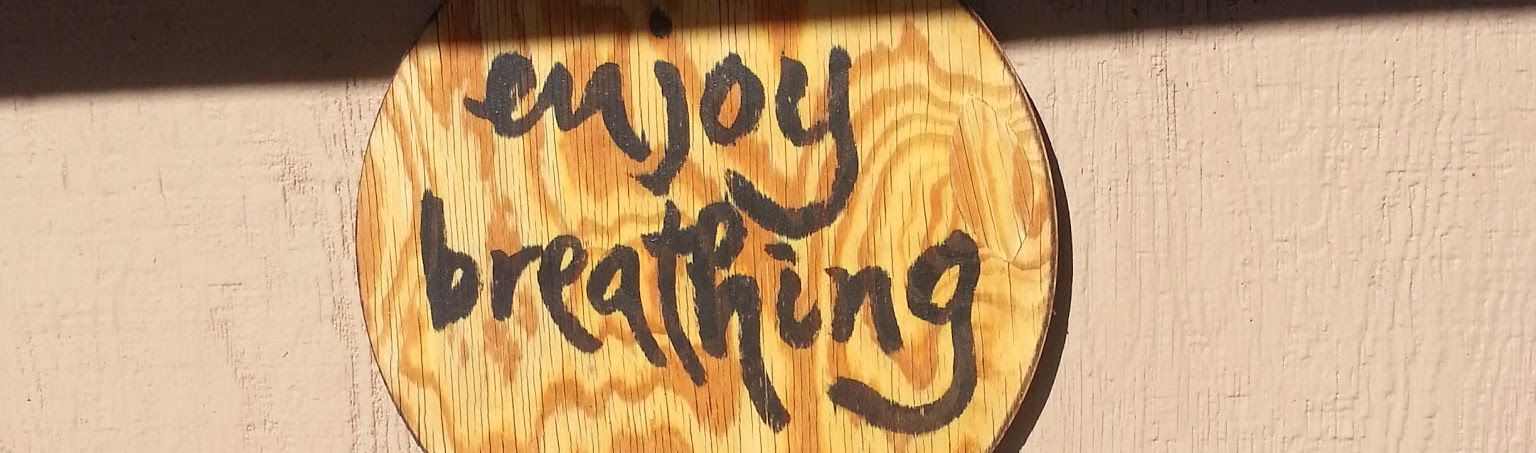 enjoy
breathing